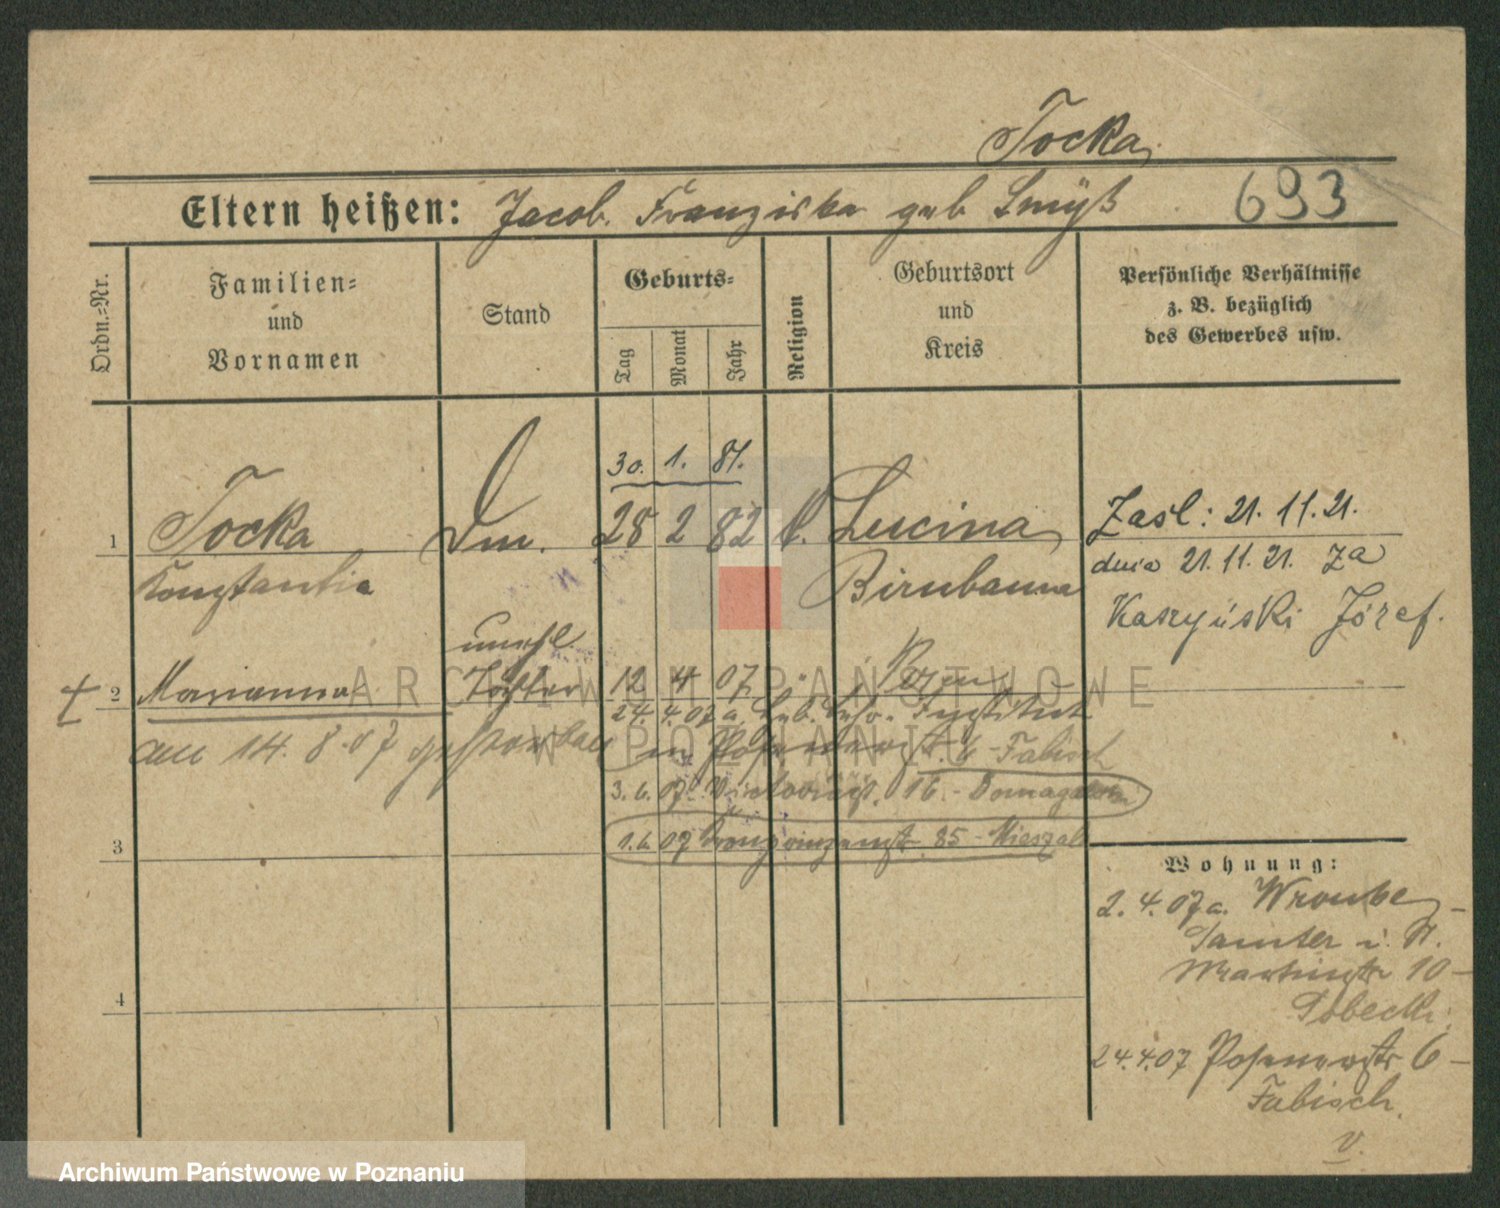 Tocka
Eltern heißen: Jacob. Franziska geb Smyß 693
Ordn.-Nr.
Familien- und Vornamen
Stand
Geburts-
Tag Monat Jahr
Religion
Geburtsort und Kreis
Persönliche Verhältnisse
z. B. bezüglich
des Gewerbes usw.
30. 1. 81.
1 Tocka Dm. 28 2 82 k. Lucina
Konstantia Birnbaum
Zasl: 21. 11. 21.
dnia 21. 11. 21. za
Kaszyński Józef.
unehl.
2 Marianna Tochter 12 4 07 Posen
24. 4. 07 a. Institut
am 14. 8. 07 gestorben
6 - Fabisch
3. 6. 07 Victoriast. 16. - Domagalski
3 1.6. 07 Kronprinzenst. 85 - Mieszal
4
Wohnung:
2. 4. 07 a. Wronke -
Samter i. H.
Martinstr 10 -
Sobecki.
24. 4. 07 Posenerstr 6 -
Fabisch.
v.
ARCHIWUM PAŃSTWOWE
W POZNANIU
Archiwum Państwowe w Poznaniu